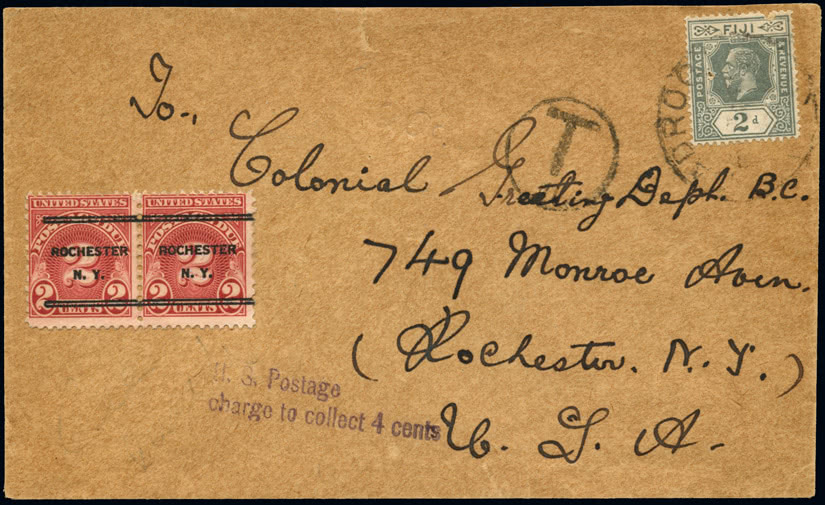 FIJI
POSTAGE & REVENUE
2d
T
To.,
Colonial Greeting Deph. B.C.
749 Monroe Aven.
(Rochester. N.Y.)
U. S. A.
UNITED STATES UNITED STATES
POSTAGE DUE POSTAGE DUE
ROCHESTER ROCHESTER
N. Y. N. Y.
2 2 2 2
CENTS CENTS
U. S. Postage
charge to collect 4 cents